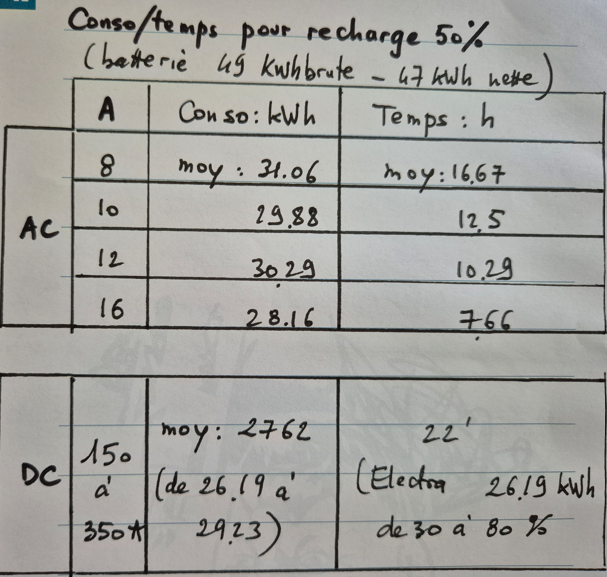 Conso/temps pour recharge 50%
(batterie 49 kwhbrute - 47 kWh nette)
A Conso: kWh Temps : h
AC
8 moy : 31.06 moy: 16,67
10 29,88 12,5
12 30.29 10.29
16 28.16 7.66
DC
150 à 350*
moy: 27.62
(de 26.19 à
29.23)
22'
(Electra 26.19 kWh
de 30 à 80 %